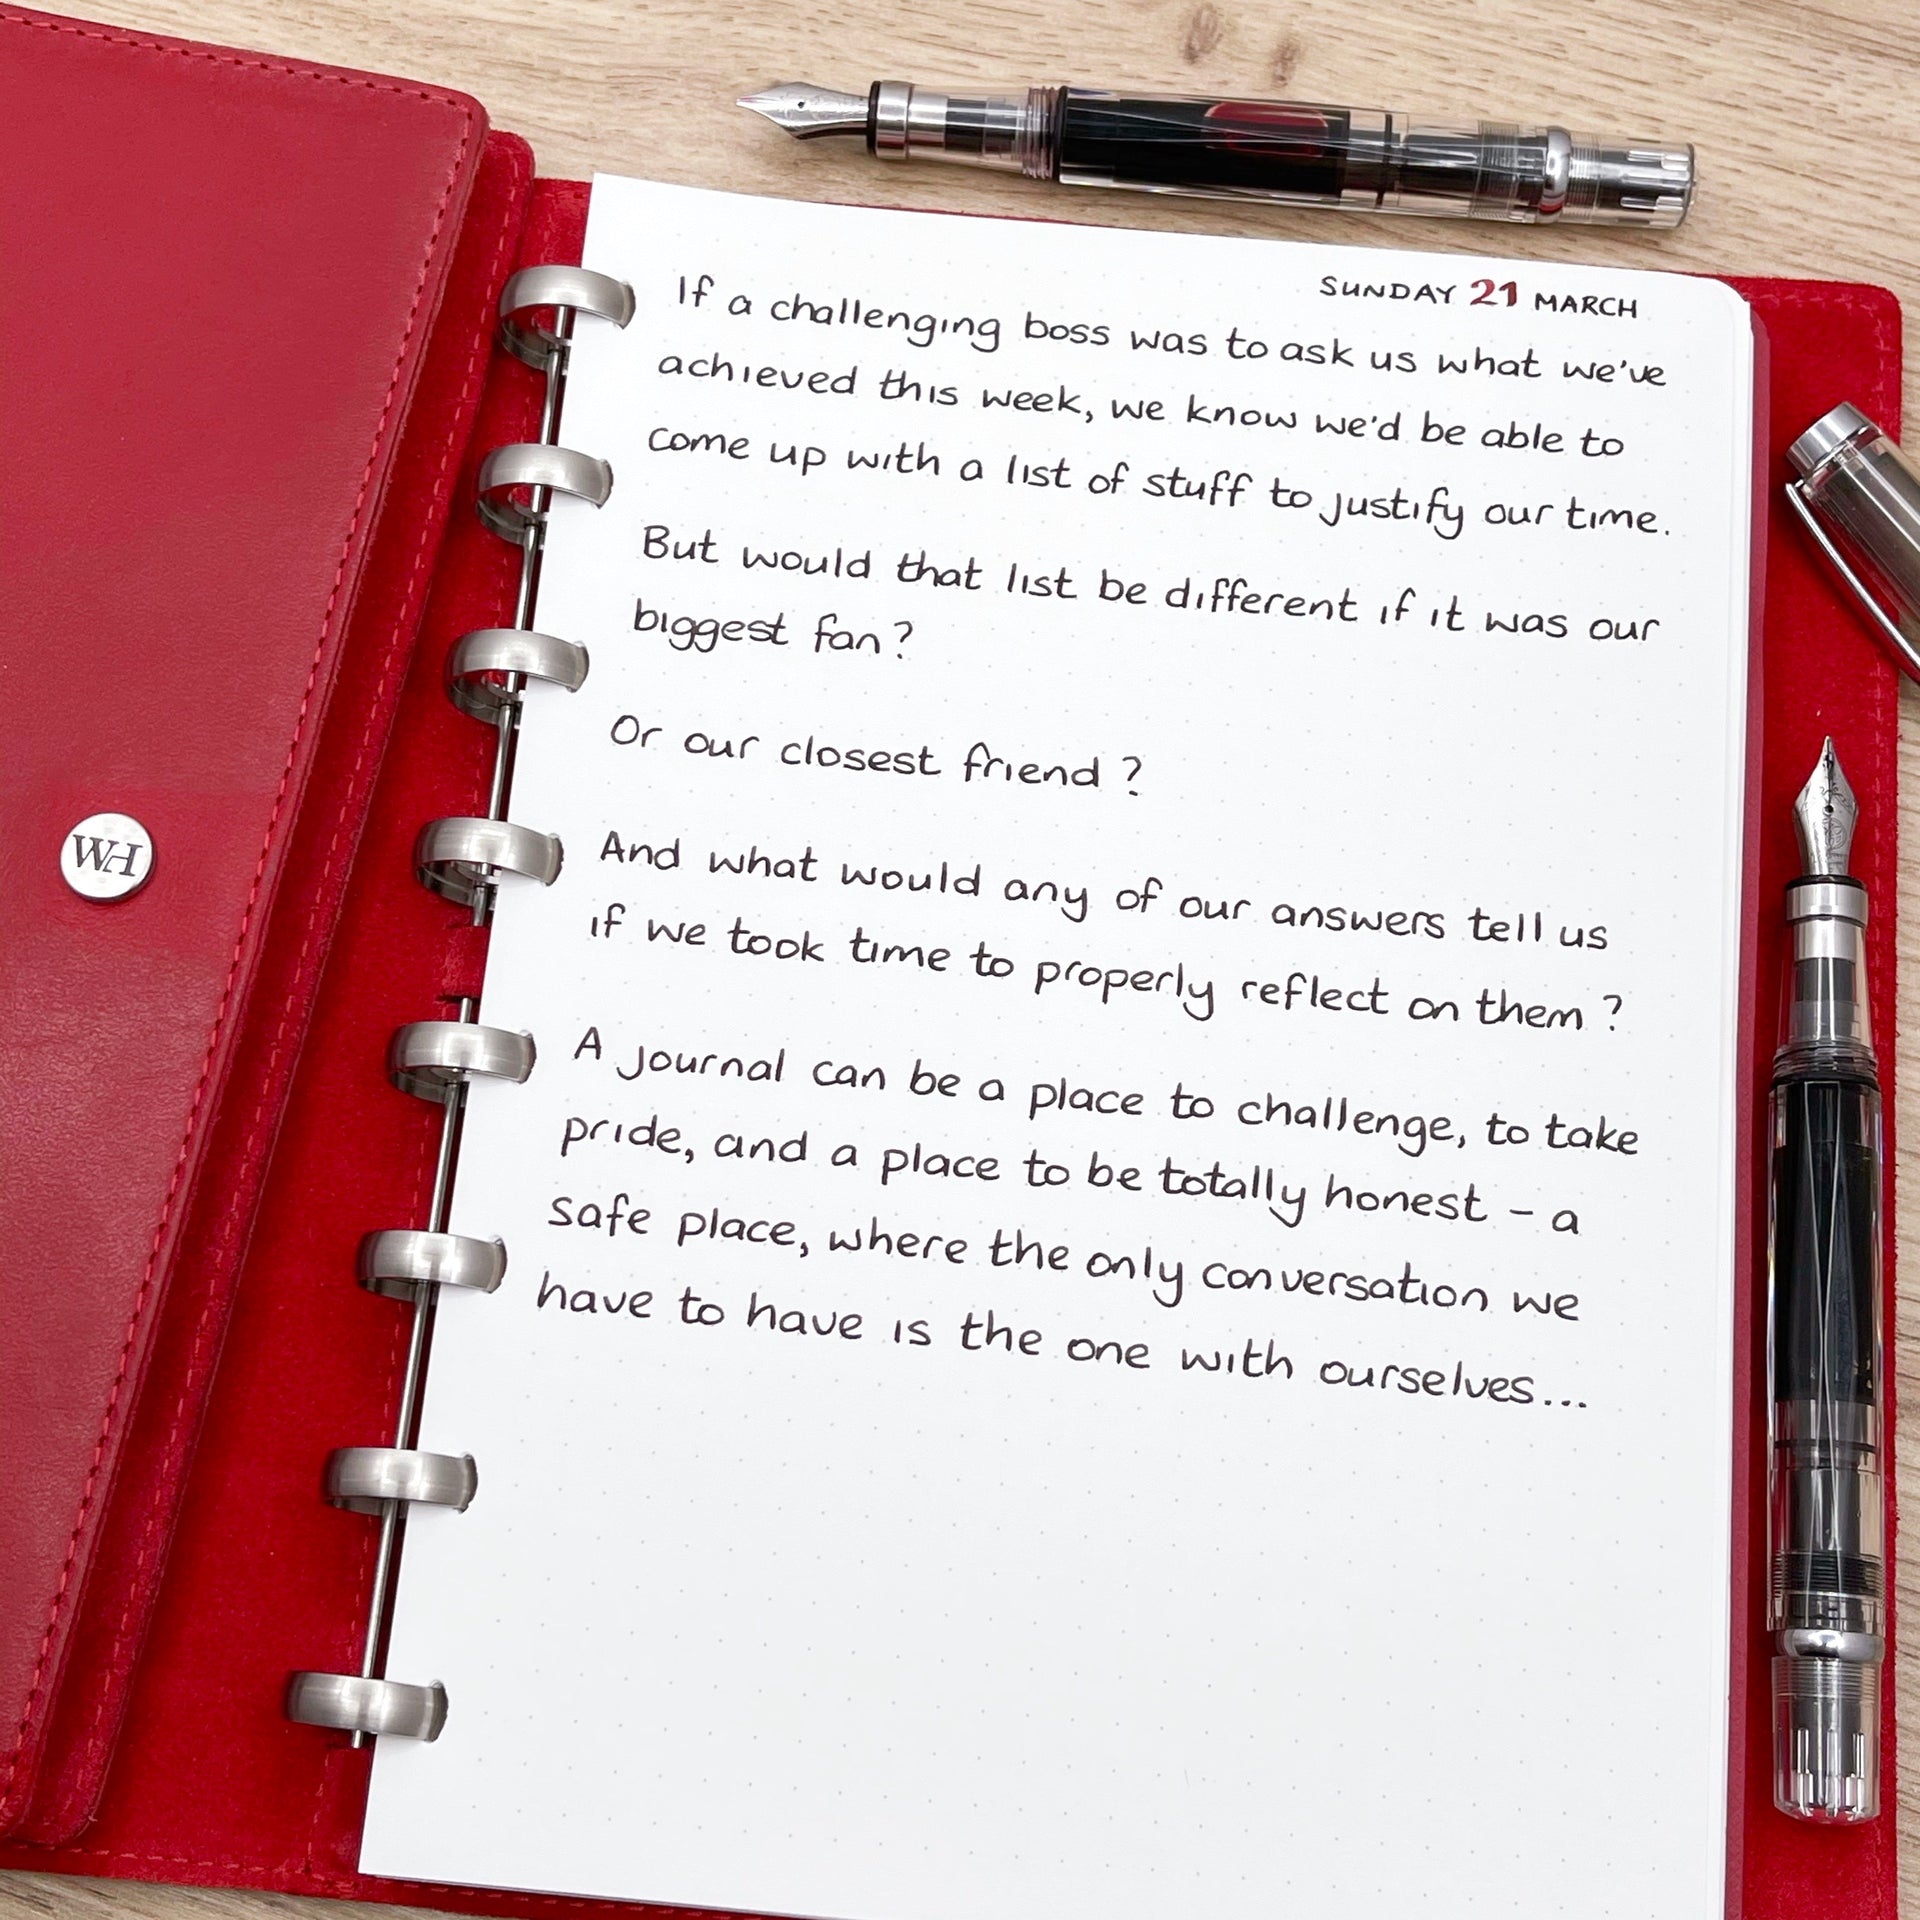 SUNDAY 21 MARCH
If a challenging boss was to ask us what we've
achieved this week, we know we'd be able to
come up with a list of stuff to justify our time.
But would that list be different if it was our
biggest fan?
Or our closest friend?
And what would any of our answers tell us
if we took time to properly reflect on them?
A journal can be a place to challenge, to take
pride, and a place to be totally honest – a
safe place, where the only conversation we
have to have is the one with ourselves...
WH